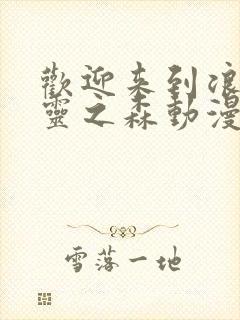 歡迎来到浪
靈之森動漫
雪落一地